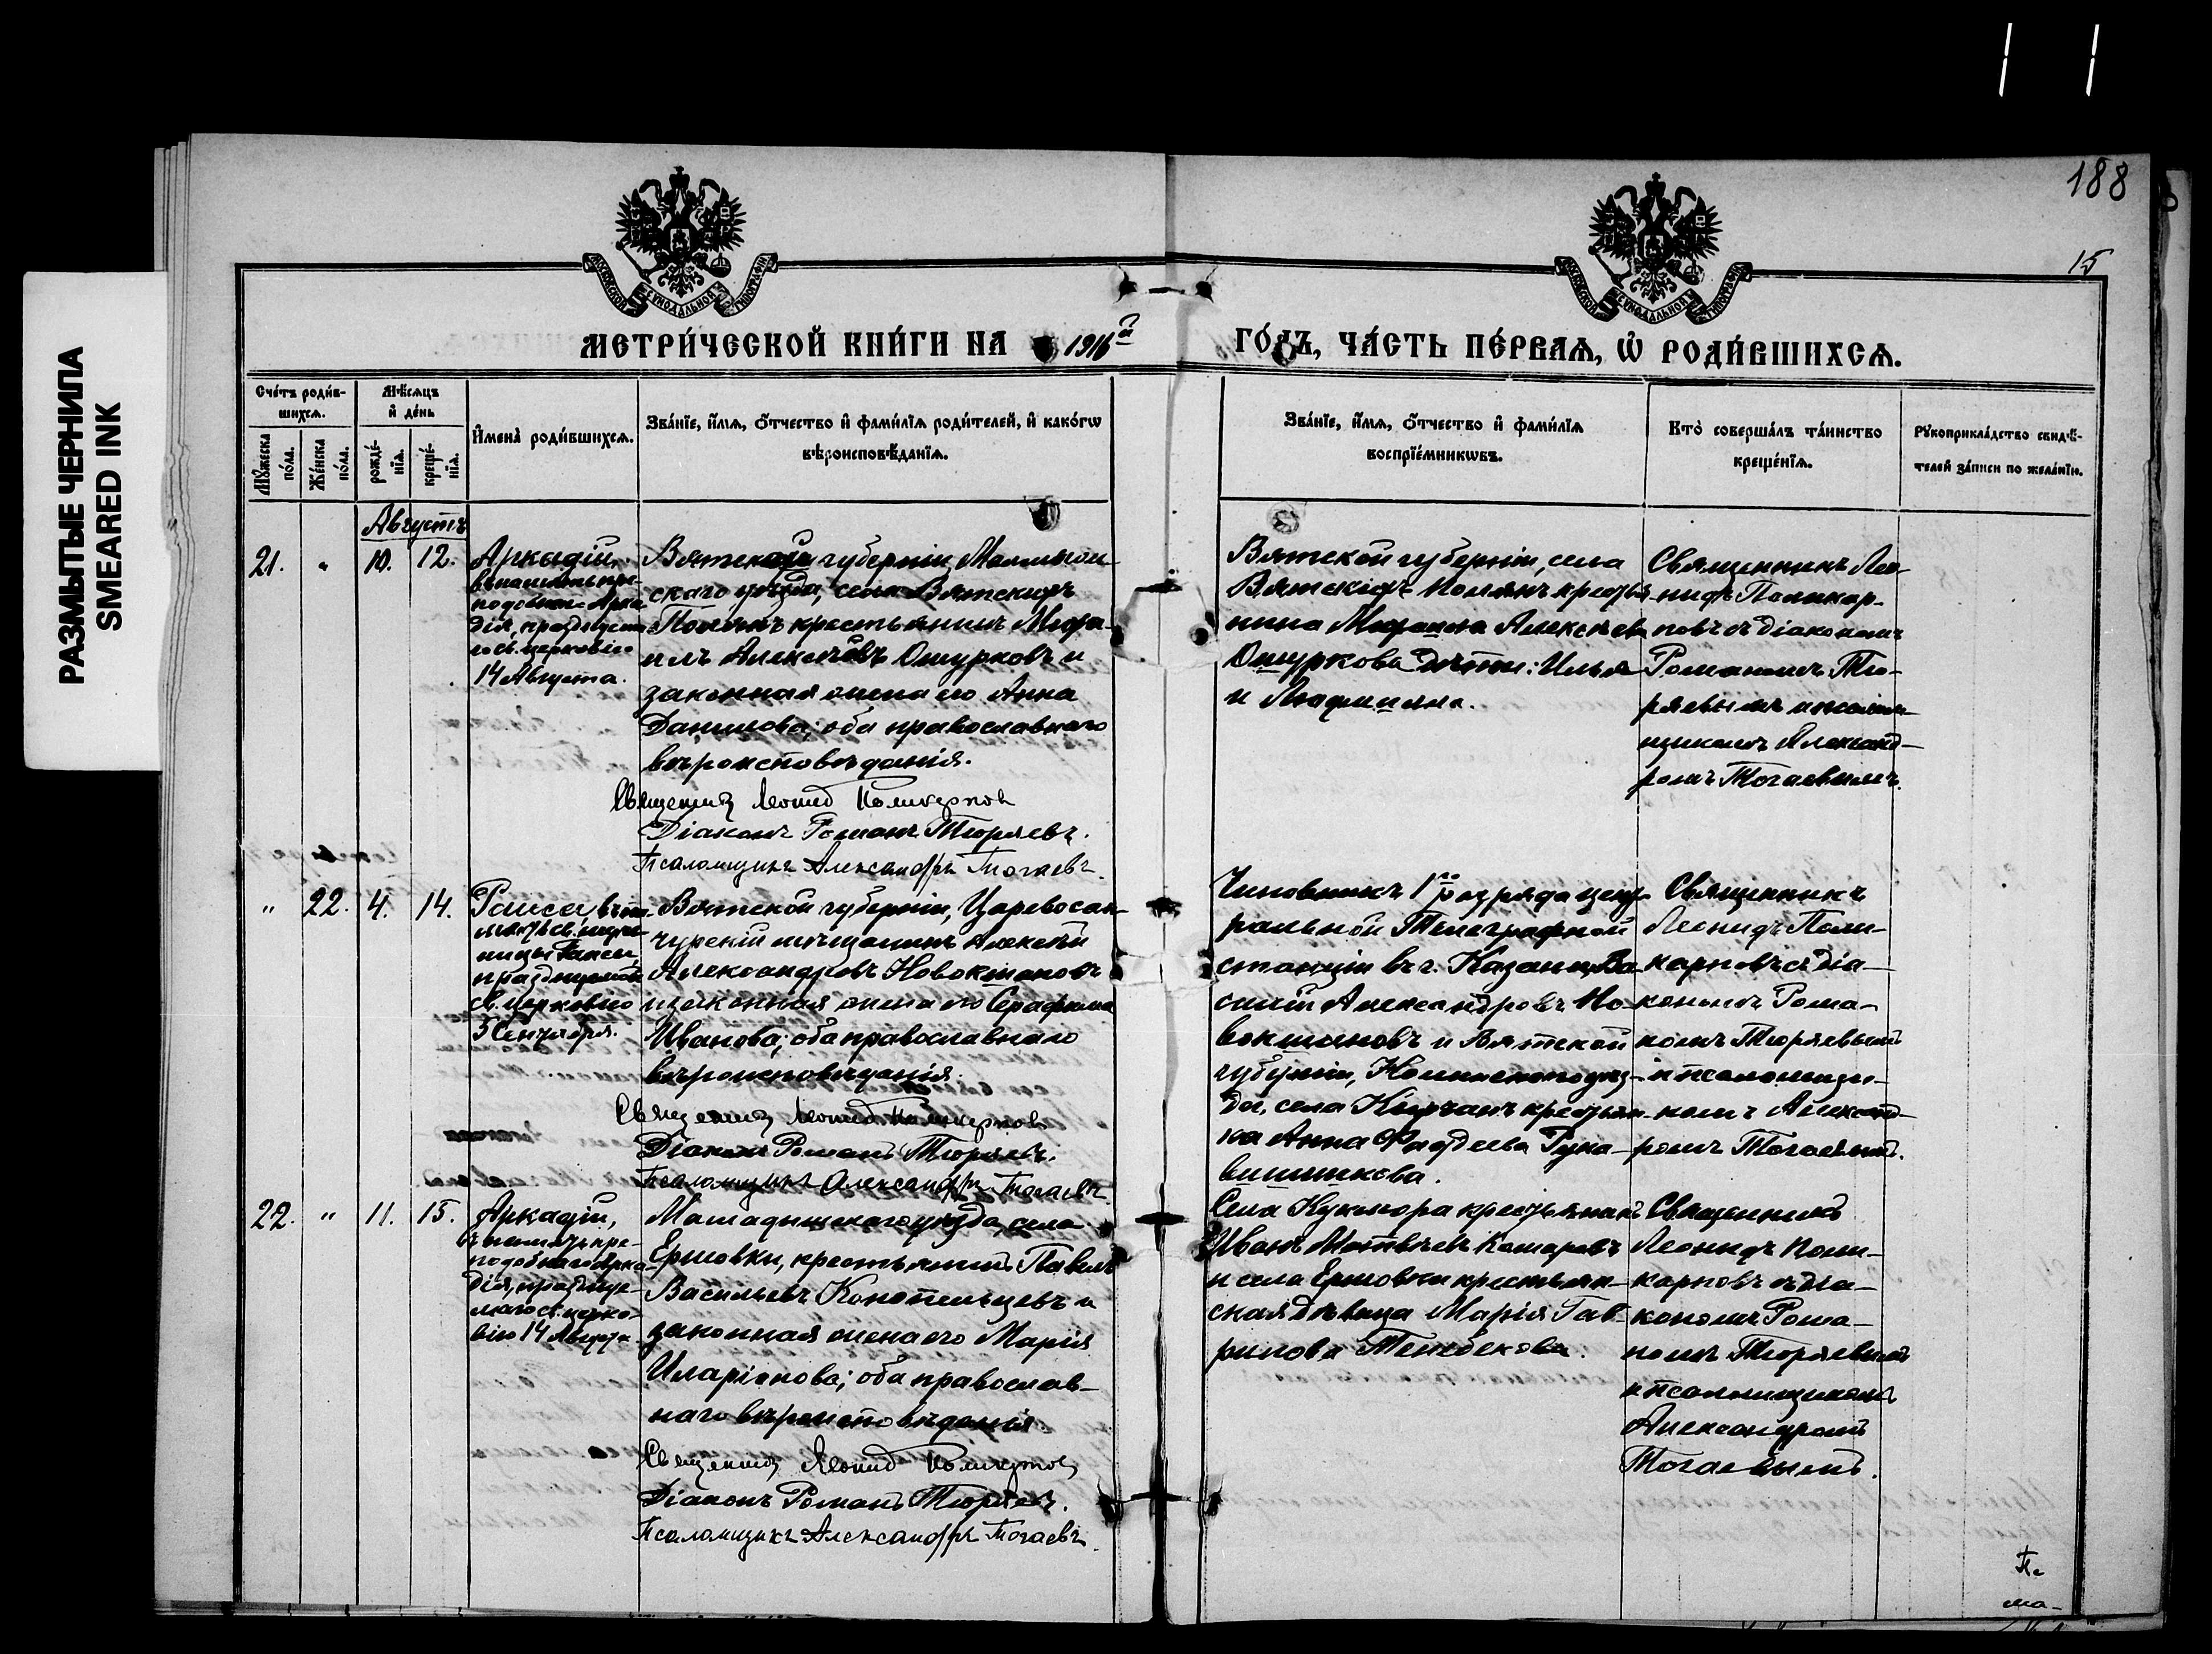 РАЗМЫТЫЕ ЧЕРНИЛА
SMEARED INK
188
15
МОСКОВСКОЙ СѴНОДАЛЬНОЙ ТИПОГРАФІИ
МОСКОВСКОЙ СѴНОДАЛЬНОЙ ТИПОГРАФІИ
МЕТРИ́ЧЕСКОЙ КНИ́ГИ НА 1916й ГО́ДЪ, ЧА́СТЬ ПЕ́РВАЯ, Ѡ РОДИ́ВШИХСЯ.
Сче́тъ роди́в-
шихся.
Мѣ́сяцъ
и де́нь
Мꙋ́жеска
по́ла.
Же́нска
по́ла.
рожде́-
нїя.
креще́-
нїя.
Имена̀ роди́вшихся.
Зва́нїе, и́мя, о́тчество и фами́лїя роди́телей, и како́гѡ
вѣроисповѣ́данїя.
Зва́нїе, и́мя, о́тчество и фами́лїя
воспрїе́мникѡвъ.
Кто̀ соверша́лъ та́инство
креще́нїя.
Рꙋкоприкла́дство свидѣ́-
телей за́писи по жела́нїю.
Августъ
21.
"
10.
12.
Аркадій,
въ память пре-
подобнаго Арка-
дія, празднуема-
го св. церковію
14 Августа.
Вятской губерніи, Малмыж-
скаго уѣзда, села Вятскихъ
Полянъ крестьянинъ Миха-
илъ Алексѣевъ Ошурковъ и
законная жена его Анна
Данилова; оба православнаго
вѣроисповѣданія.
Священникъ Леонид Поликарпов
Діаконъ Романъ Тюряевъ.
Псаломщикъ Александръ Тогаевъ.
Вятской губерніи, села
Вятскихъ Полянъ крестья-
нина Михаила Алексѣева
Ошуркова дѣти: Илья
и Людмила.
Священникъ Лео-
нидъ Поликар-
повъ съ діакономъ
Романомъ Тю-
ряевымъ и псалом-
щикомъ Александ-
ромъ Тогаевымъ.
"
22.
4.
14.
Раиса, въ па-
мять св. муче-
ницы Раисы,
празднуемой
св. церковію
5 Сентября.
Вятской губерніи, Царевосан-
чурскій мѣщанинъ Алексѣй
Александровъ Новокшоновъ
и законная жена его Серафима
Иванова; оба православнаго
вѣроисповѣданія.
Священникъ Леонид Поликарпов
Діаконъ Романъ Тюряевъ.
Псаломщикъ Александръ Тогаевъ
Чиновникъ 1го разряда цент-
ральной Телеграфной
станціи въ г. Казани Ва-
силій Александровъ Но-
вокшоновъ и Вятской
губерніи, Нолинскаго уѣз-
да, села Кырчанъ крестьян-
ка Анна Фаддеева Рука-
вишникова.
Священникъ
Леонидъ Поли-
карповъ съ діа-
кономъ Рома-
номъ Тюряевымъ
и псаломщи-
комъ Александ-
ромъ Тогаевымъ.
22.
"
11.
15.
Аркадій,
въ память пре-
подобнаго Арка-
дія, праздуе-
маго св. церко-
вію 14 Августа
Мамадышскаго уѣзда, села
Ершовки, крестьянинъ Павелъ
Васильевъ Конопельцевъ и
законная жена его Марія
Иларіонова; оба православ-
наго вѣроисповѣданія
Священникъ Леонид Поликарпов
Діаконъ Романъ Тюряевъ.
Псаломщикъ Александръ Тогаевъ.
Села Кукмора крестьянинъ
Иванъ Матвѣевъ Комаровъ
и села Ершовки крестьян-
ская дѣвица Марія Гав-
рилова
Священникъ
Леонидъ Поли-
карповъ съ діа-
кономъ Рома-
номъ Тюряевымъ
и псаломщикомъ
Александромъ
Тогаевымъ.
По
ма-